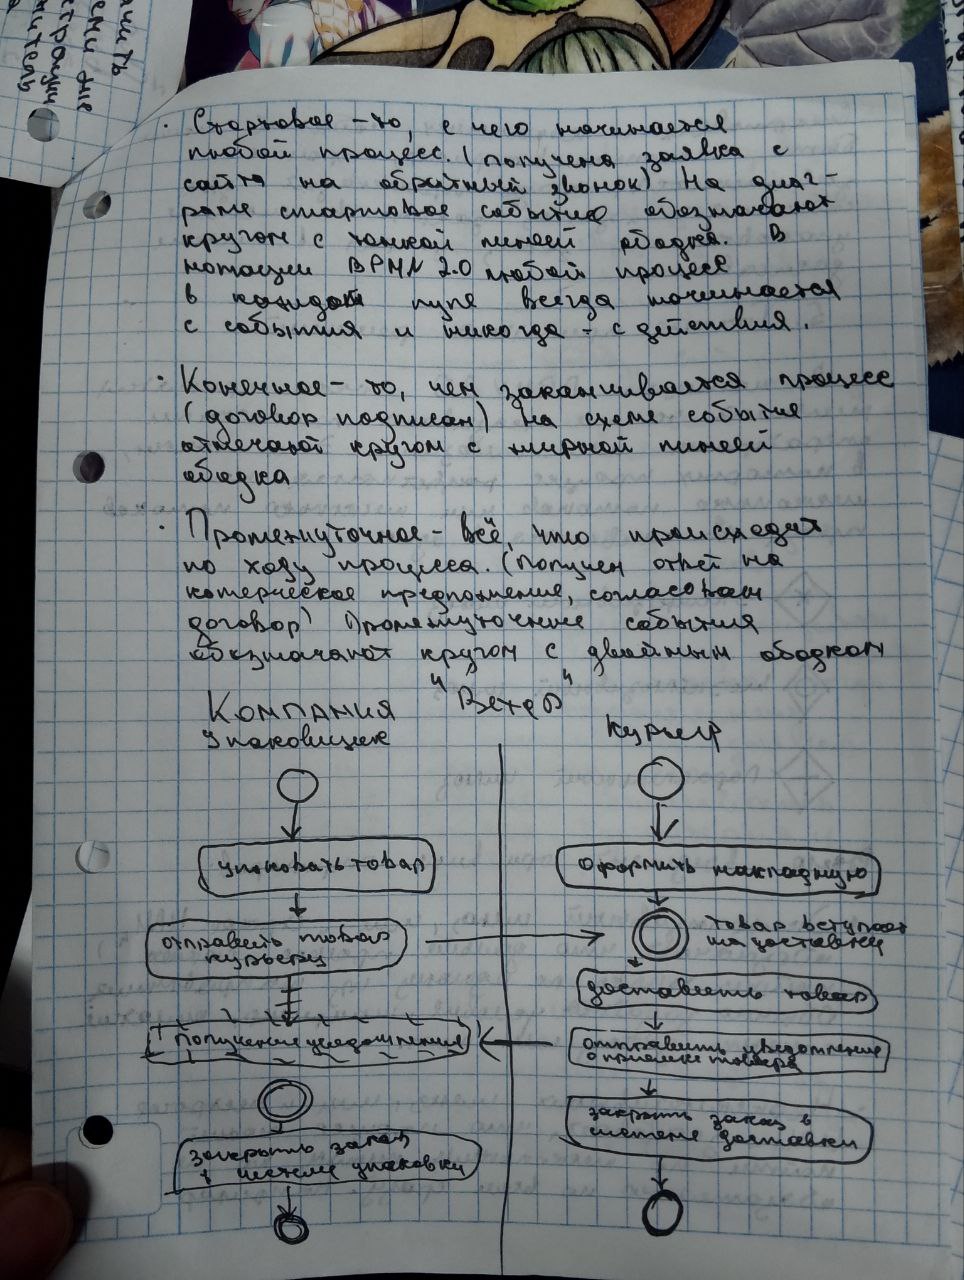 · Стартовое - то, с чего начинается
любой процесс. (получена заявка с
сайта на обратный звонок) На диаг-
раме стартовое событие обозначают
кругом с тонкой линией ободка. В
нотации BPMN 2.0 любой процесс
в каждом пуле всегда начинается
с события и никогда - с действия.
· Конечное - то, чем заканчивается процесс
(договор подписан) На схеме событие
отмечают кругом с жирной линией
ободка
· Промежуточное - всё, что происходит
по ходу процесса. (Получен ответ на
комерческое предложение, согласован
договор) Промежуточные события
обозначают кругом с двойным ободком
Компания "Ветер"
Упаковщик
Курьер
упаковать товар
отправить товар
курьеру
Получение уведомления
закрыть заказ
в системе упаковки
оформить накладную
товар вступает
на доставку
доставить товар
отправить уведомление
о приёмке товара
закрыть заказ в
системе доставки